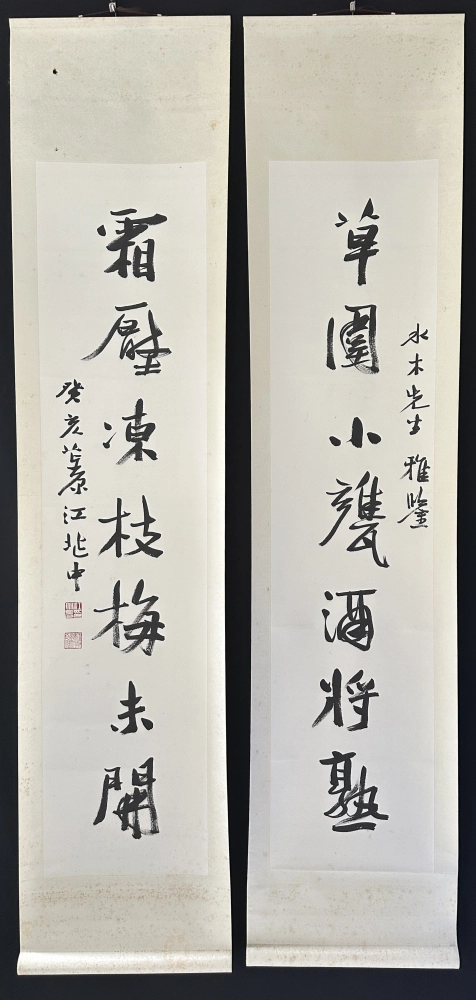 草圍小甕酒將熟
水木先生 雅鑒
霜壓凍枝梅未開
癸亥茮原江兆申